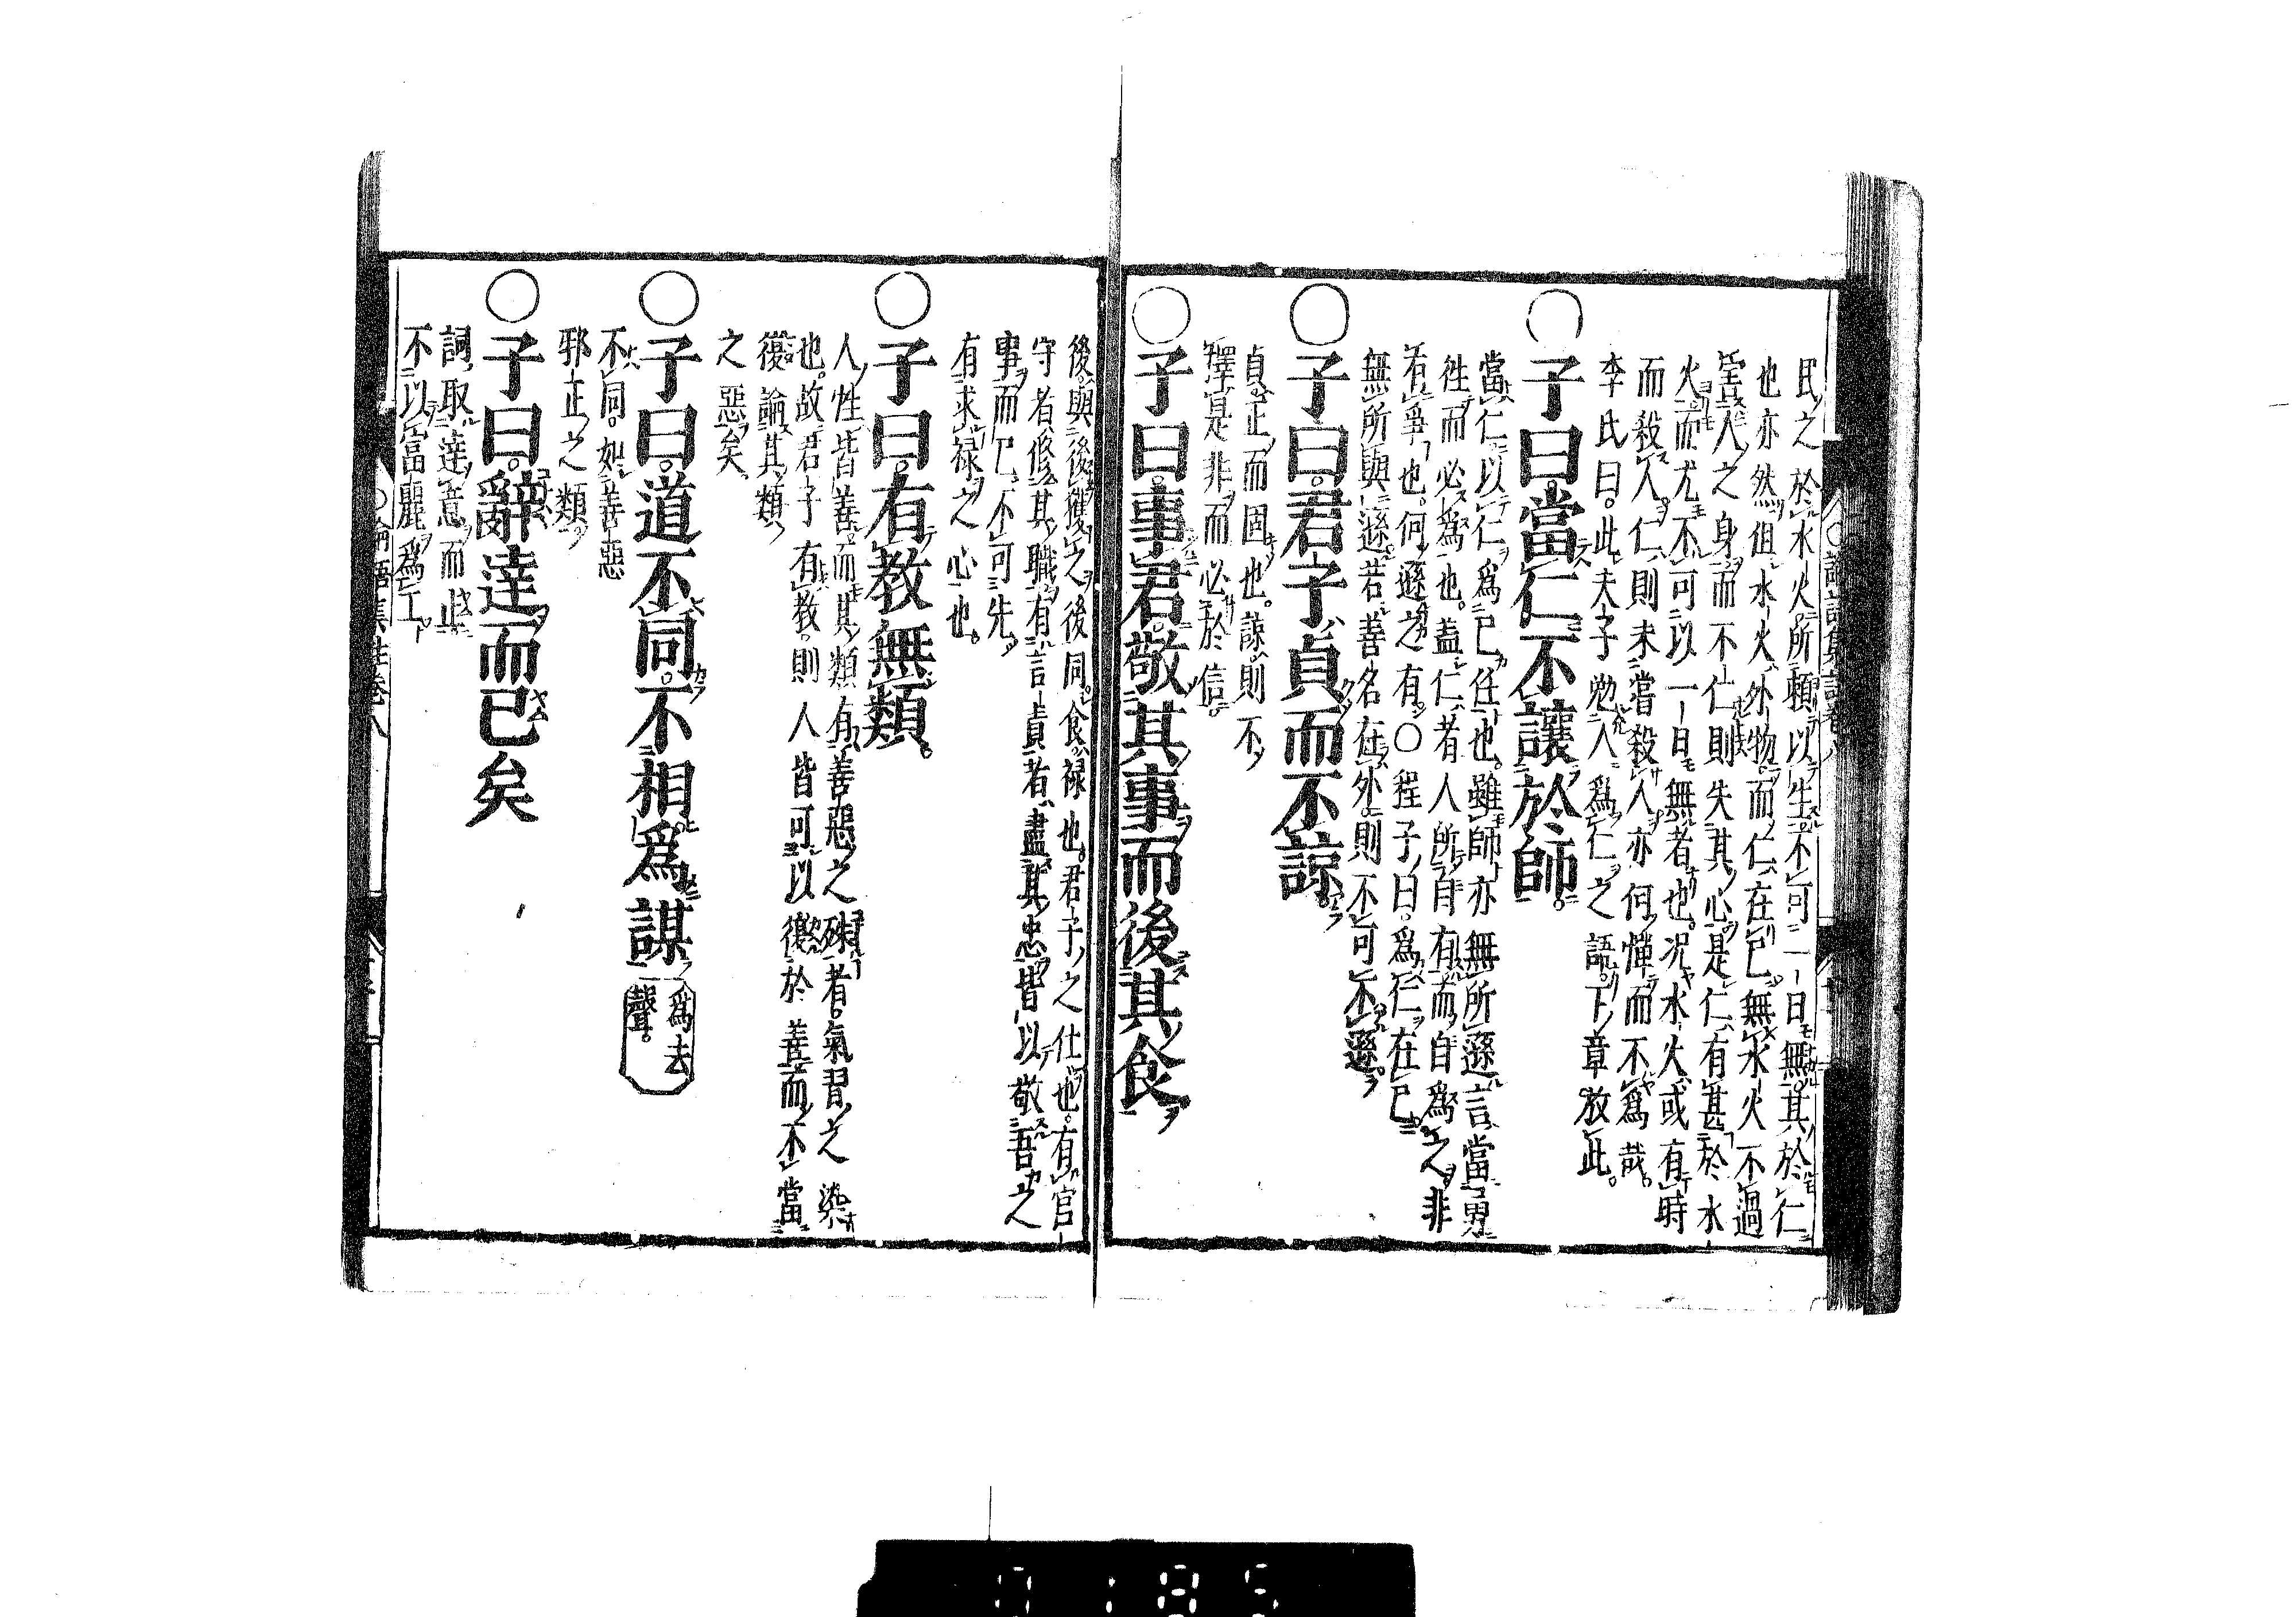 民之於水火所賴以生不可一日無其於仁
也亦然但水火外物而仁在己無水火不過
害人之身而不仁則失其心是仁有甚於水
火而尤不可以一日無者也况水火或有時
而殺人仁則未嘗殺人亦何憚而不爲哉
李氏曰此夫子勉人爲仁之語下章放此
○子曰當仁不讓於師
當仁以仁爲己任也雖師亦無所遜言當勇
徃而必爲也盖仁者人所自有而自爲之非
有爭也何遜之有○程子曰爲仁在己
無所與遜若善名在外則不可不遜
○子曰君子貞而不諒
貞正而固也諒則不
擇是非而必於信
○子曰事君敬其事而後其食
後與後獲之後同食禄也君子之仕也有官
守者修其職有言責者盡其忠皆以敬吾之
事而已不可先
有求禄之心也
○子曰有教無類
人性皆善而其類有善惡之殊者氣習之染
也故君子有教則人皆可以復於善而不當
復論其類
之惡矣
○子曰道不同不相爲謀
爲去
聲
不同如善惡
邪正之類
○子曰辭達而已矣
詞取達意而止
不以富麗爲工
○論語集註卷八